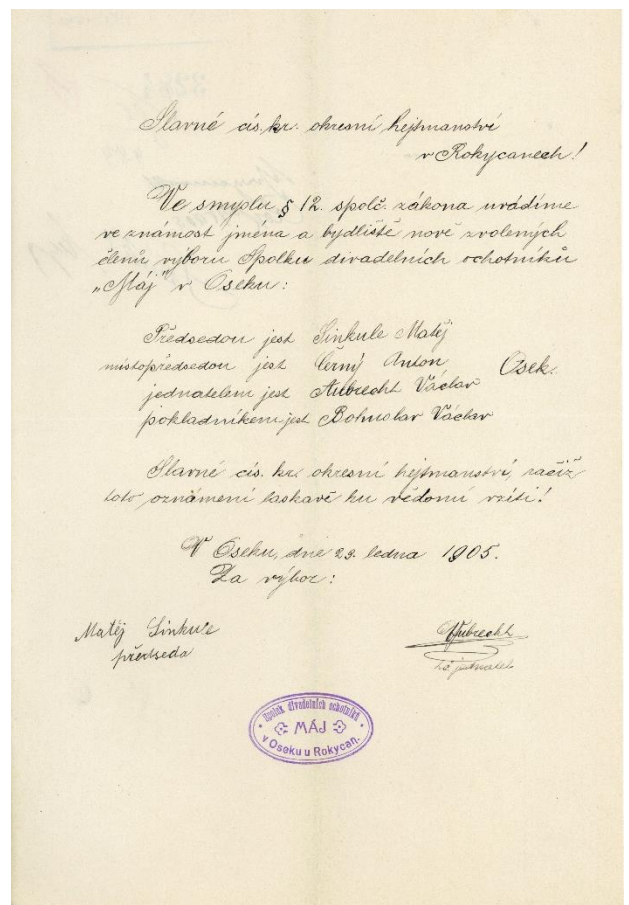 Slavné cís. kr. okresní hejtmanství
v Rokycanech!
Ve smyslu § 12. spolč. zákona uvádíme
ve známost jména a bydliště nově zvolených
členů výboru Spolku divadelních ochotníků
„Máj" v Oseku:
Předsedou jest Sinkule Matěj
místopředsedou jest Černý Anton Osek.
jednatelem jest Aubrecht Václav
pokladníkem jest Bohuslav Václav
Slavné cís. kr. okresní hejtmanství, račiž
toto oznámení laskavě ku vědomí vzíti!
V Oseku, dne 29. ledna 1905.
Za výbor:
Matěj Sinkule
předseda
Aubrecht
jednatel
Spolek divadelních ochotníků
MÁJ
v Oseku u Rokycan.